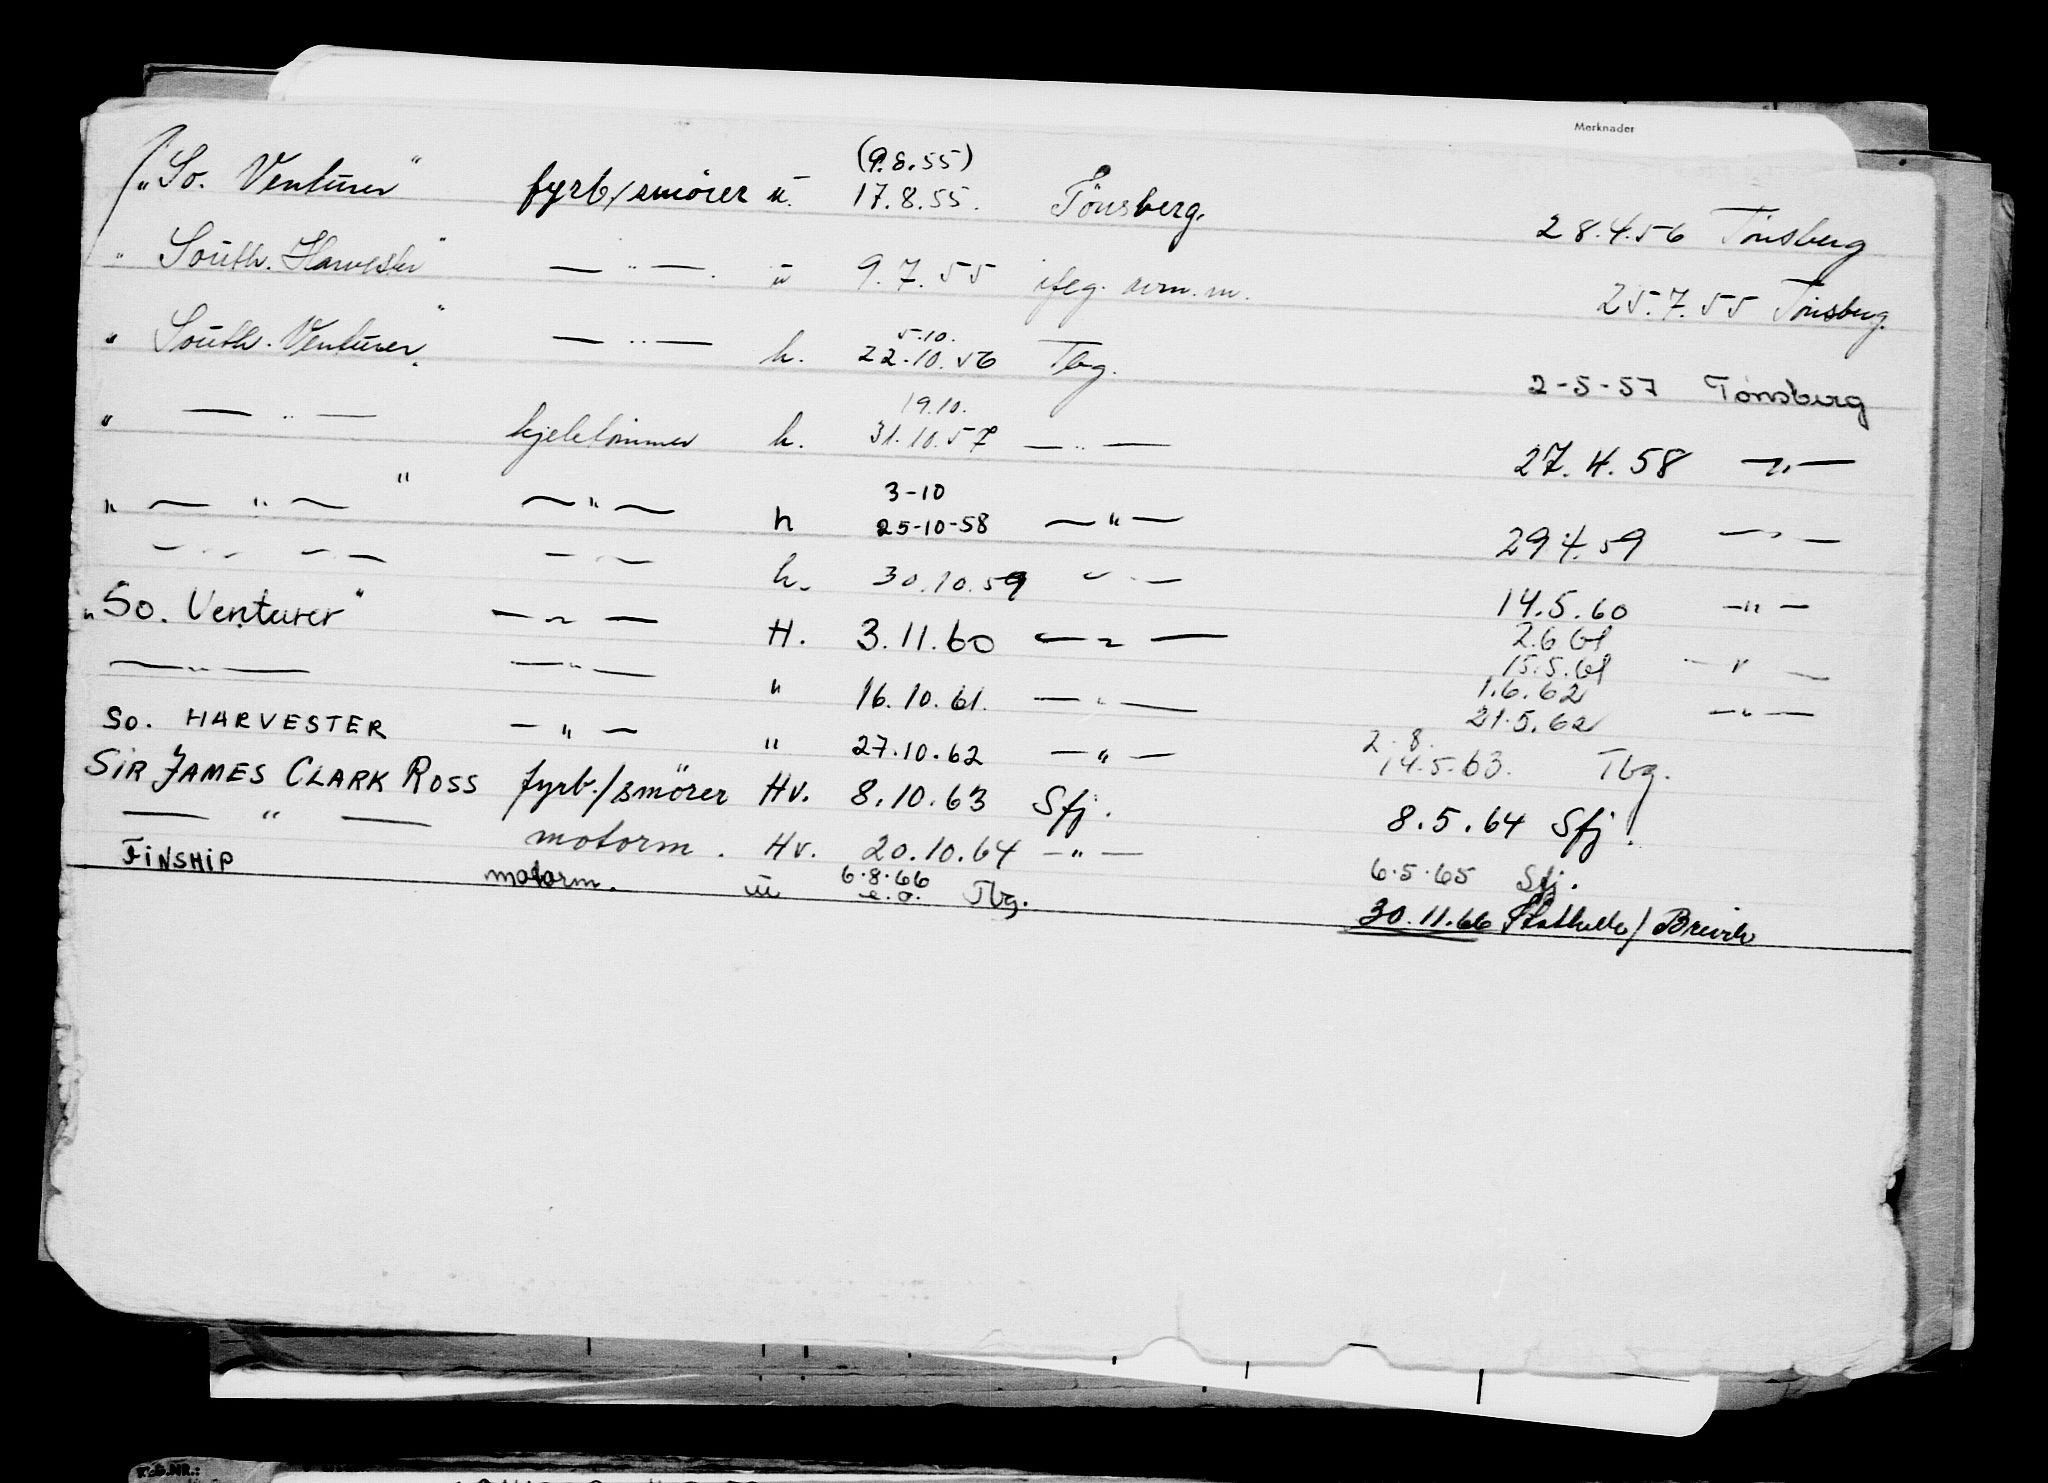 Merknader
(9.8.55)
"So. Venturer" fyrb/smörer u. 17.8.55. Tönsberg. 28.4.56 Tönsberg
" South. Harvester" — " — . u 9.7.55 ifeg. 25.7.55 Tönsberg.
5.10.
" South. Venturer" — " — h. 22.10.56 Tbg. 2-5-57 Tönsberg
19.10.
" — " — kjeletömmer h. 31.10.57 — " — 27.4.58 — " —
3-10
" — " — " — " — h 25-10-58 — " — 29.4.59 — " —
— " — — " — h. 30.10.59 — " — 14.5.60 — " —
2.6.61
"So. Venturer" — " — H. 3.11.60 — " — 15.5.61 — " —
1.6.62
— " — — " — " 16.10.61. — " — 21.5.62 — " —
2.8.
So. HARVESTER — " — " 27.10.62 — " — 14.5.63. Tbg.
SIR JAMES CLARK ROSS fyrb./smörer Hv. 8.10.63 Sfj. 8.5.64 Sfj.
— " — motorm. Hv. 20.10.64 — " — 6.5.65 Sfj.
FINSHIP motorm. u 6.8.66 e.o. Tbg. 30.11.66 Stathelle/Brevik
R.G.NR.: